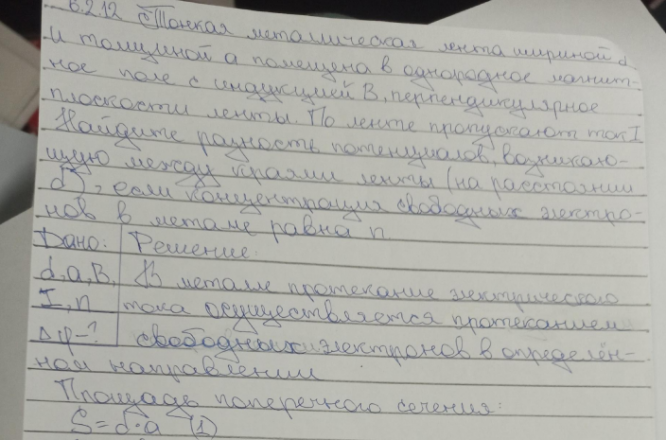 6.2.12 Тонкая металлическая лента шириной d
и толщиной a помещена в однородное магнит-
ное поле с индукцией B, перпендикулярное
плоскости ленты. По ленте пропускают ток I
Найдите разность потенциалов, возникаю-
щую между краями ленты (на расстоянии
d), если концентрация свободных электро-
нов в метале равна n
Дано: Решение:
d, a, B, В метале протекание электрического
I, n тока осуществляется протеканием
Δφ-? свободных электронов в определён-
ном направлении
Площадь поперечного сечения:
S = d·a (1)